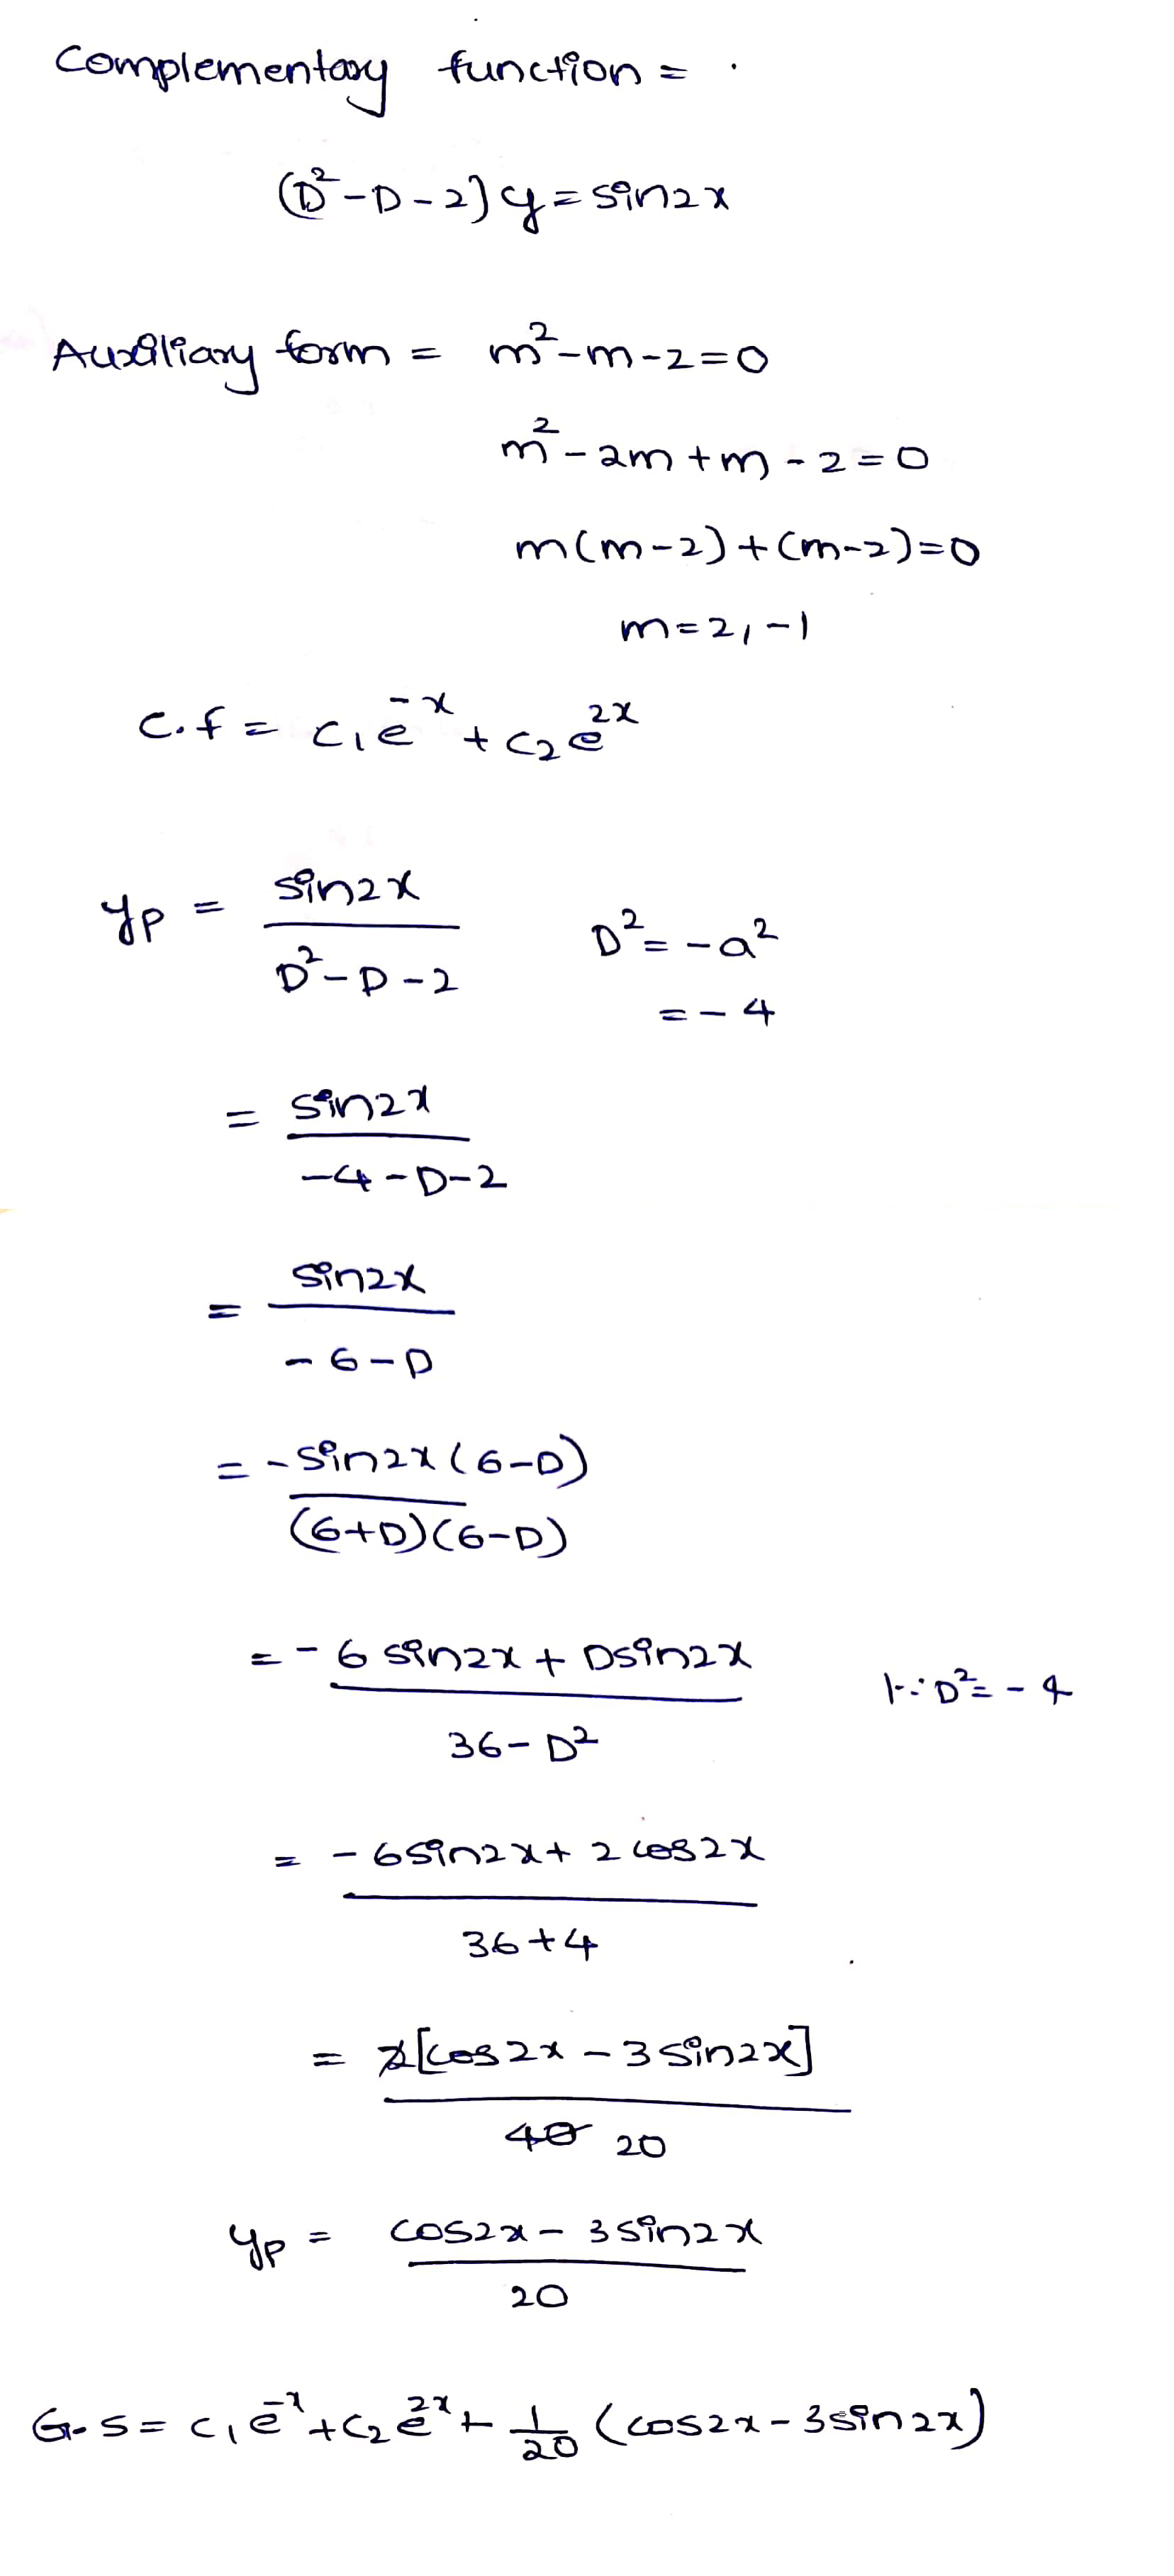 Complementary function =
(D²-D-2)y = sin2x
Auxiliary form = m²-m-2=0
m²-2m+m-2=0
m(m-2)+(m-2)=0
m=2,-1
C.f = c₁e⁻ˣ + c₂e²ˣ
yp = sin2x / D²-D-2    D² = -a²
= -4
= sin2x / -4-D-2
= sin2x / -6-D
= -sin2x(6-D) / (6+D)(6-D)
= -6 sin2x + Dsin2x / 36-D²    ∵ D²=-4
= -6sin2x + 2cos2x / 36+4
= 2[cos2x - 3sin2x] / 40 20
yp = cos2x - 3sin2x / 20
G.S = c₁e⁻ˣ + c₂e²ˣ + 1/20 (cos2x - 3sin2x)